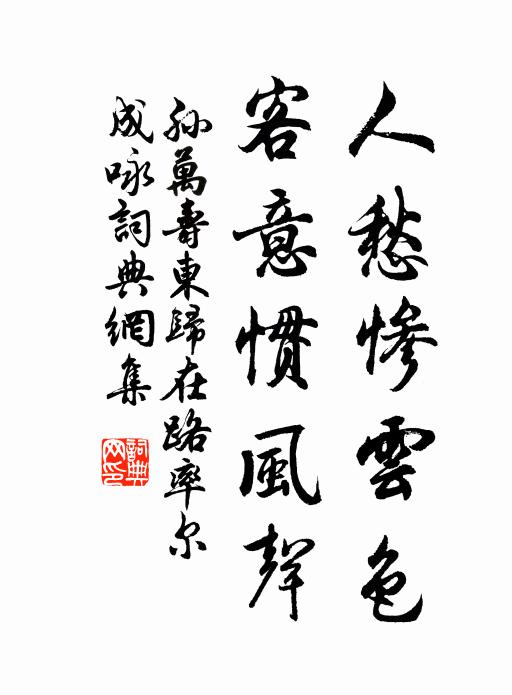 人愁慘雲色
客意慣風聲
孫萬壽東歸在路率尔
成咏詞典網集
詞典
网印